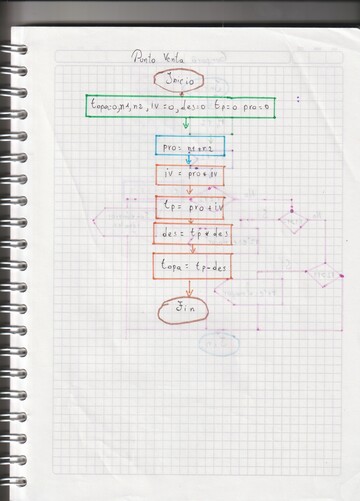 Punto Venta
Inicio
topa=0,n1,n2, iv=0, des=0 tp=0 pro=0
pro= n1*n2
iv = pro*iv
tp= pro+iv
des = tp*des
topa= tp-des
Fin